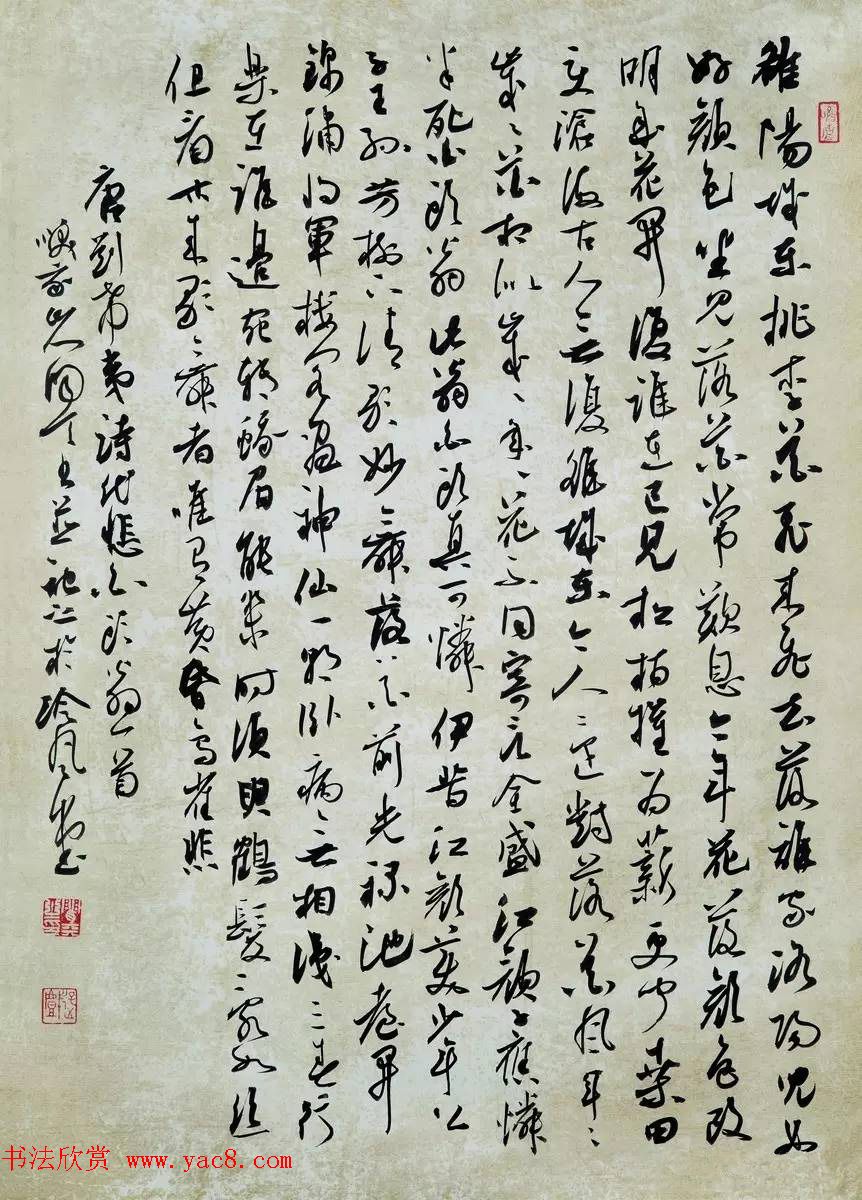 雒陽城東桃李花飛來飛去落誰家洛陽兒女
好顏色坐見落花常歎息今年花落顏色改
明年花開復誰在已見松柏摧為薪更聞桑田
變滄海古人無復雒城東今人還對落花風年〻
歲〻花相似歲〻年〻花不同寄言全盛紅顏子應憐
半死白頭翁此翁白頭真可憐伊昔紅顏美少年公
子王孫芳樹下清歌妙舞落花前光祿池臺開
錦繡將軍樓閣畫神仙一朝臥病無相識三春行
樂在誰邊宛轉蛾眉能幾時須臾鶴髮亂如絲
但看古來歌舞者唯有黃昏鳥雀悲
唐劉希夷詩代悲白頭翁一首
並記之於冷風
书法欣赏 www.yac8.com